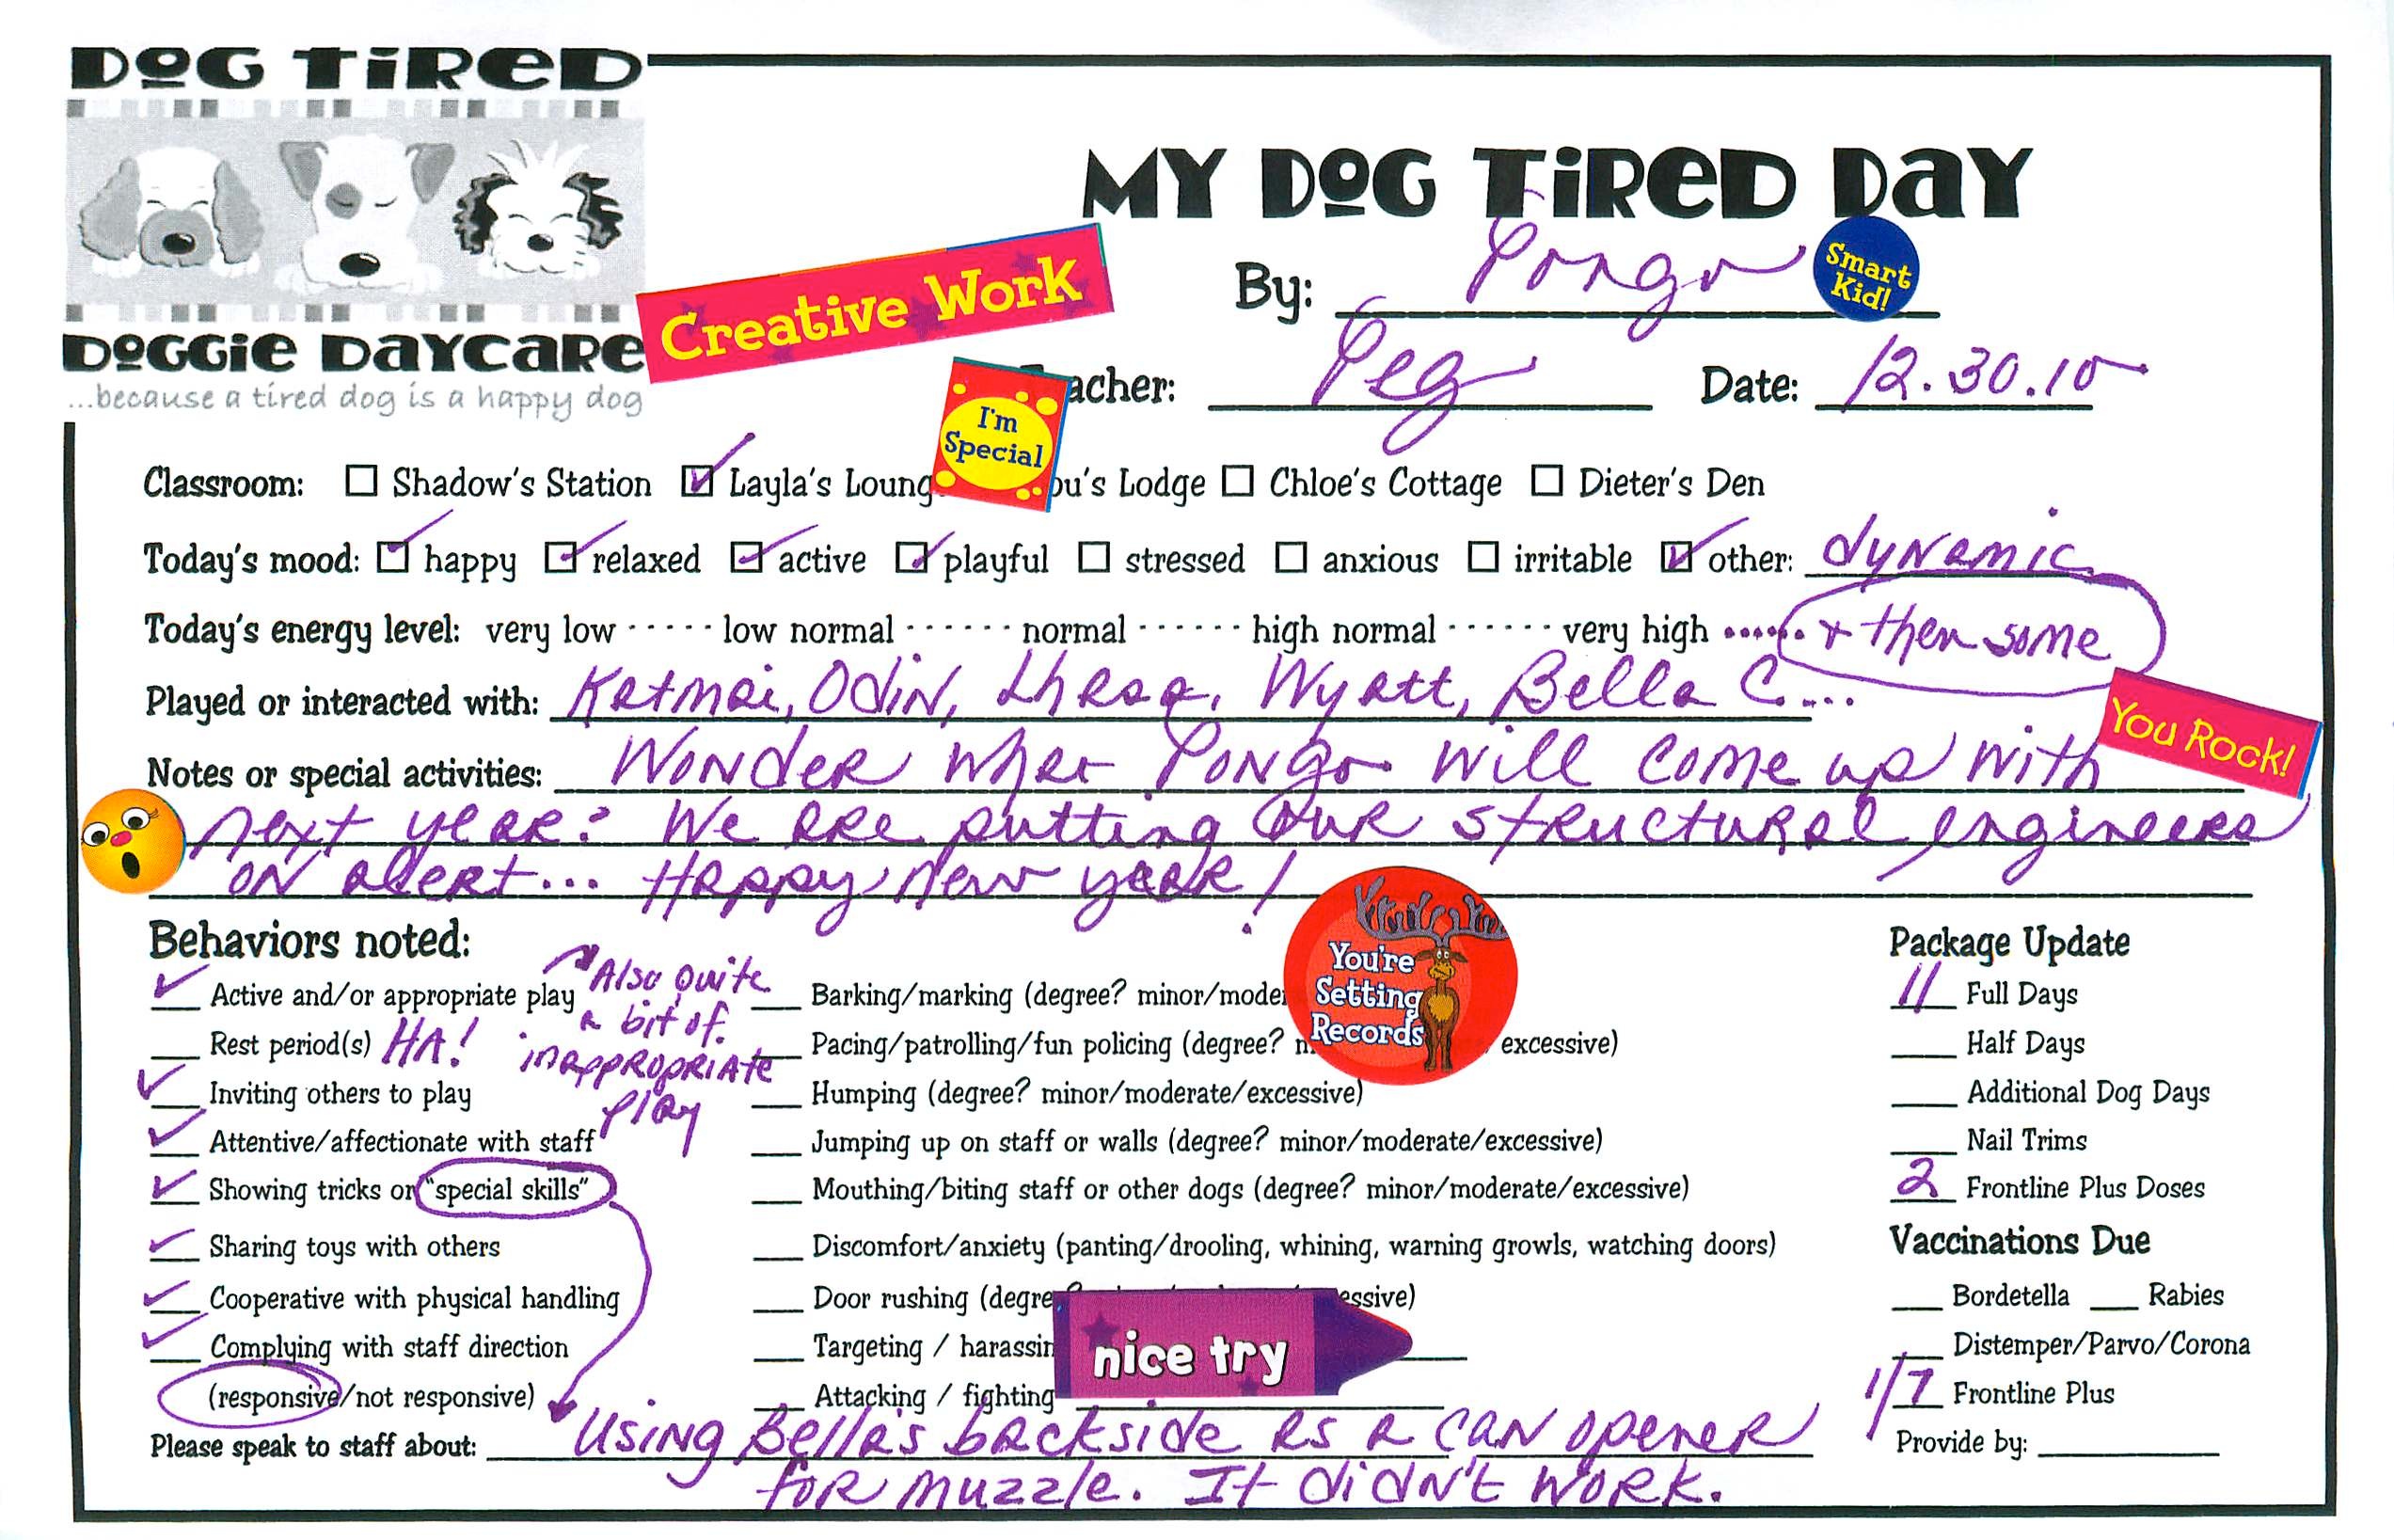 DOG TIRED
DOGGIE DAYCARE
...because a tired dog is a happy dog
MY DOG TIRED DAY
Creative Work
By: Pongo
Smart Kid!
acher: Peg Date: 12.30.10
I'm Special
Classroom: ☐ Shadow's Station ☑ Layla's Loung ou's Lodge ☐ Chloe's Cottage ☐ Dieter's Den
Today's mood: ☑ happy ☑ relaxed ☑ active ☑ playful ☐ stressed ☐ anxious ☐ irritable ☑ other: dynamic
Today's energy level: very low ----- low normal ------ normal ------ high normal ------ very high ...... + then some
Played or interacted with: Katmai, Odin, Lhasa, Wyatt, Bella C...
You Rock!
Notes or special activities: Wonder what Pongo will come up with
next year? We are putting our structural engineers
on alert... Happy New year!
You're Setting Records
Behaviors noted:
✓ Active and/or appropriate play
Also quite a bit of inappropriate play
Rest period(s) HA!
✓ Inviting others to play
✓ Attentive/affectionate with staff
✓ Showing tricks or "special skills"
✓ Sharing toys with others
✓ Cooperative with physical handling
✓ Complying with staff direction
(responsive/not responsive)
Barking/marking (degree? minor/moder
Pacing/patrolling/fun policing (degree? excessive)
Humping (degree? minor/moderate/excessive)
Jumping up on staff or walls (degree? minor/moderate/excessive)
Mouthing/biting staff or other dogs (degree? minor/moderate/excessive)
Discomfort/anxiety (panting/drooling, whining, warning growls, watching doors)
Door rushing (degre essive)
Targeting / harassin
nice try
Attacking / fighting
Please speak to staff about: Using Bella's backside as a can opener
for muzzle. It didn't work.
Package Update
11 Full Days
Half Days
Additional Dog Days
Nail Trims
2 Frontline Plus Doses
Vaccinations Due
Bordetella Rabies
Distemper/Parvo/Corona
1/7 Frontline Plus
Provide by: